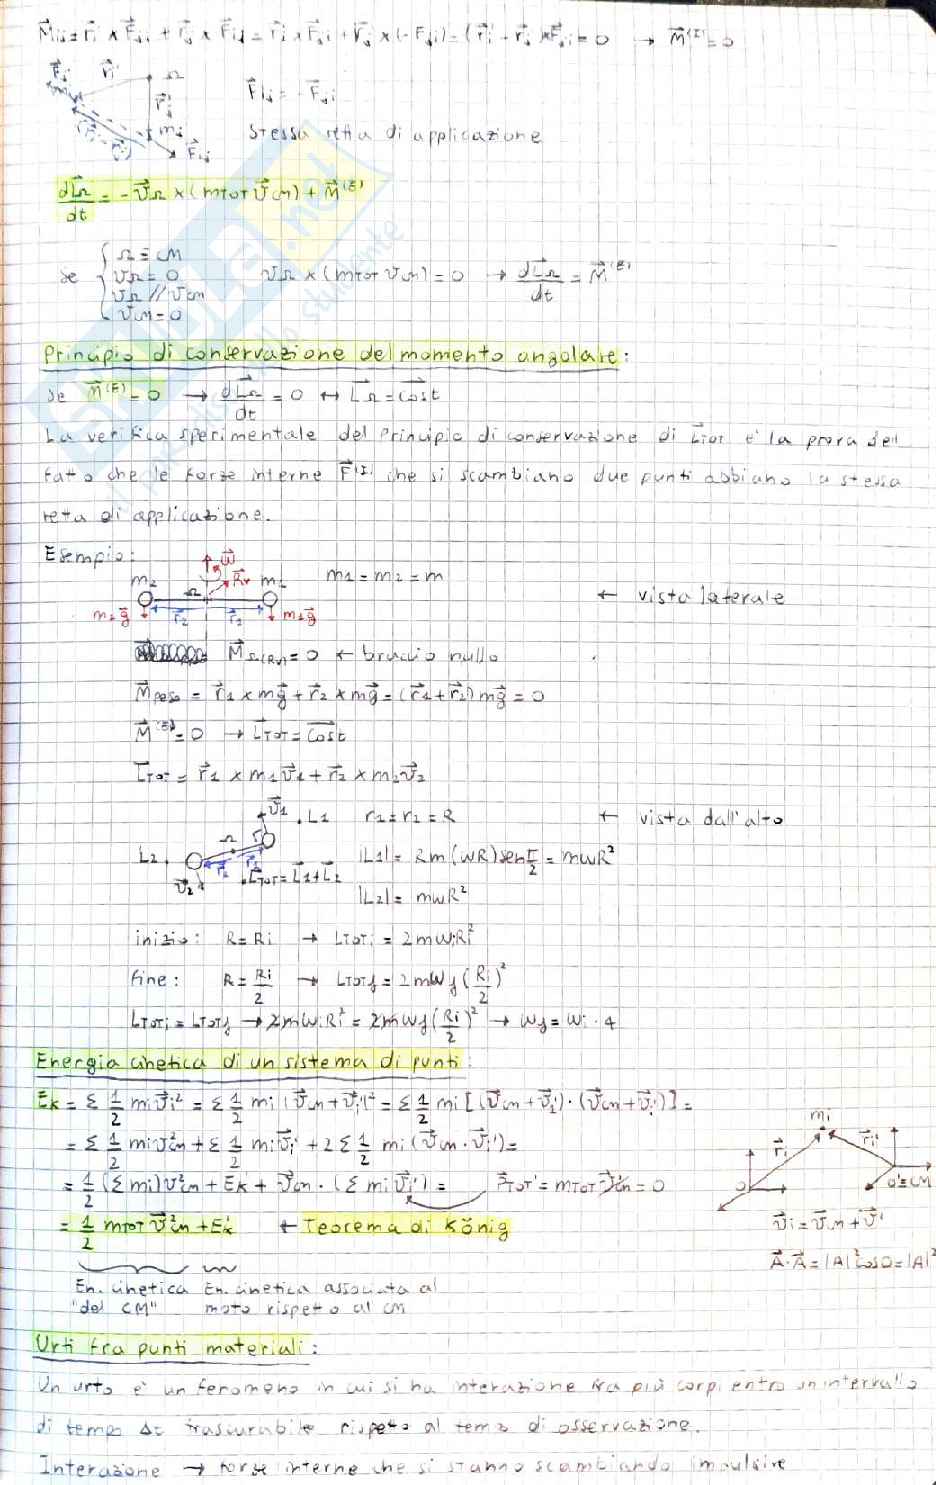 M⃗ij = r⃗i × F⃗ji + r⃗j × F⃗ij = r⃗i × F⃗ji + r⃗j × (-F⃗ji) = (r⃗i - r⃗j) × F⃗ji = 0 → M⃗(I) = 0
F⃗ij = -F⃗ji
Stessa retta di applicazione
dL⃗Ω/dt = -v⃗Ω × (mTOT v⃗CM) + M⃗(E)
se { Ω ≡ CM
vΩ = 0
vΩ // vCM
vCM = 0
vΩ × (mTOT vCM) = 0 → dL⃗Ω/dt = M⃗(E)
Principio di conservazione del momento angolare:
Se M⃗(E) = 0 → dL⃗Ω/dt = 0 ↔ L⃗Ω = cost
La verifica sperimentale del Principio di conservazione di L⃗TOT è la prova del
fatto che le forze interne F⃗(I) che si scambiano due punti abbiano la stessa
retta di applicazione.
Esempio:
m2 Ω ω⃗ R⃗v m1 m1 = m2 = m
m2g⃗ r⃗2 r⃗1 m1g⃗
← vista laterale
M⃗Ω(Rv) = 0 ← braccio nullo
M⃗peso = r⃗1 × mg⃗ + r⃗2 × mg⃗ = (r⃗1 + r⃗2) mg⃗ = 0
M⃗(E) = 0 → L⃗TOT = cost
L⃗TOT = r⃗1 × m1v⃗1 + r⃗2 × m2v⃗2
v⃗1 . L1 r1 = r2 = R ← vista dall'alto
L2 . Ω r⃗2 r⃗1 |L1| = Rm(ωR)sen π/2 = mωR²
v⃗2 . L⃗TOT = L⃗1 + L⃗2
|L2| = mωR²
inizio: R = Ri → LTOTi = 2mωiRi²
fine: R = Ri/2 → LTOTf = 2mωf(Ri/2)²
LTOTi = LTOTf → 2mωiRi² = 2mωf(Ri/2)² → ωf = ωi · 4
Energia cinetica di un sistema di punti:
Ek = Σ 1/2 mi v⃗i² = Σ 1/2 mi |v⃗CM + v⃗i'|² = Σ 1/2 mi [(v⃗CM + v⃗i') · (v⃗CM + v⃗i')] =
= Σ 1/2 mi v²CM + Σ 1/2 mi v⃗i' + 2 Σ 1/2 mi (v⃗CM · v⃗i') =
= 1/2 (Σ mi) v²CM + Ek + v⃗CM · (Σ mi v⃗i') = P⃗TOT' = mTOT v⃗'CM = 0
= 1/2 mTOT v⃗²CM + E'k ← Teorema di König
mi
r⃗i r⃗i'
O O' ≡ CM
v⃗i = v⃗CM + v⃗'
A⃗·A⃗ = |A|² cos0 = |A|²
En. cinetica "del CM"
En. cinetica associata al moto rispetto al CM
Urti fra punti materiali:
Un urto è un fenomeno in cui si ha interazione fra più corpi entro un intervallo
di tempo Δt trascurabile rispetto al tempo di osservazione.
Interazione → forze interne che si stanno scambiando impulsive